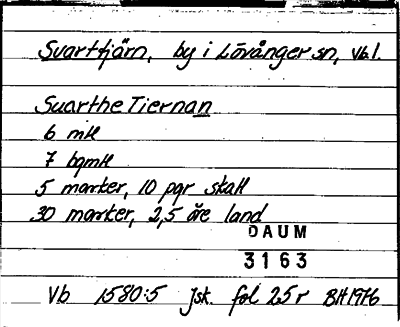 Svarttjärn, by i Lövånger sn, Vb l.
Suarthe Tiernan
6 mtl
7 bgmtl
5 marker, 10 pgr skatt
30 marker, 2,5 öre land
DAUM
3163
Vb 1580:5 Jsk. fol 25r BH1976